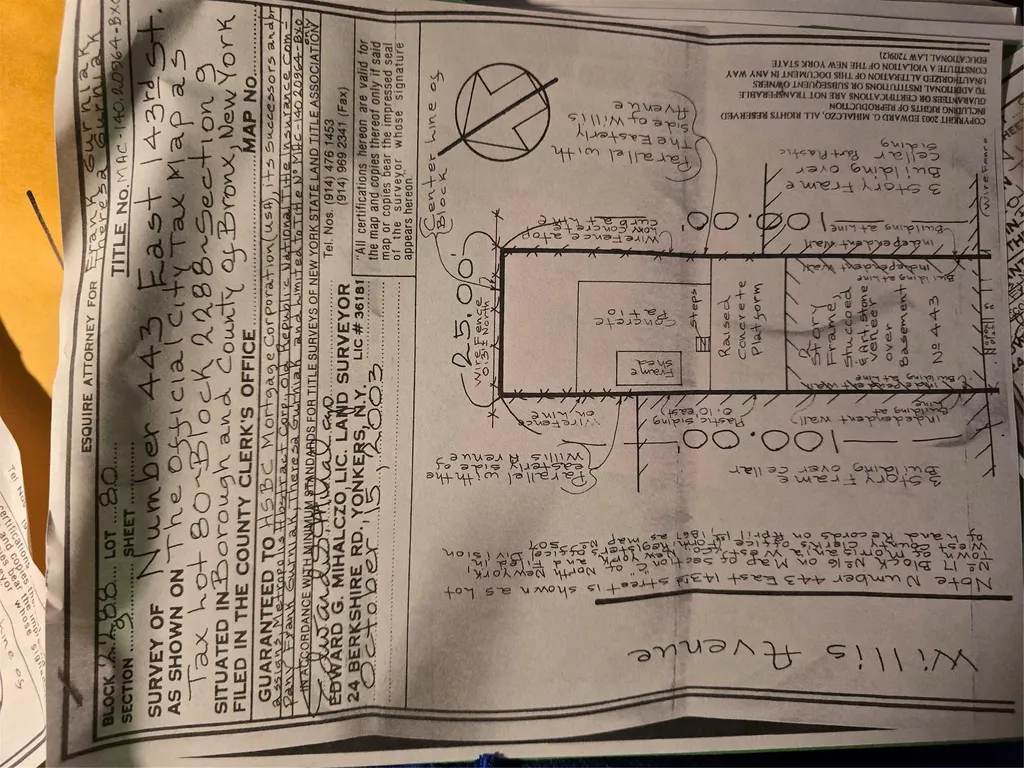 ESQUIRE ATTORNEY FOR Frank Gurniak
Theresa Gurniak
BLOCK 2288 LOT 80
SECTION 9 SHEET
TITLE NO. MAC-140.20964-BXO
SURVEY OF Number 443 East 143rd St.
AS SHOWN ON The Official City Tax Map as
Tax Lot 80-Block 2288-Section 9
SITUATED IN Borough and County of Bronx, New York
FILED IN THE COUNTY CLERK'S OFFICE MAP NO.
GUARANTEED TO HSBC Mortgage Corporation (USA), its successors and/or
assigns, Metropolitan Abstract Corp., Old Republic National Title Insurance Com-
pany, Frank Gurniak & Theresa Gurniak and limited to Title Nº MAC-140.20964-BXO
IN ACCORDANCE WITH MINIMUM STANDARDS FOR TITLE SURVEYS OF NEW YORK STATE LAND TITLE ASSOCIATION
EDWARD G. MIHALCZO, LIC. LAND SURVEYOR
24 BERKSHIRE RD., YONKERS, N.Y. LIC # 36181
October 15, 2003
Tel. Nos. (914) 476 1453
(914) 969 2341 (Fax)
"All certifications hereon are valid for
the map and copies thereof only if said
map or copies bear the impressed seal
of the surveyor whose signature
appears hereon"
Center line of
Block
25.00'
Wire Fence
0.3± North
Wire Fence atop
low Concrete
curb at Line
Parallel with
The Easterly
side of Willis
Avenue
100.00
Wire Fence
on Line
Parallel with the
easterly side of
Willis Avenue
100.00
Concrete
Patio
Frame
shed
Steps
Raised
Concrete
Platform
2
Story
Frame,
Stuccoed
& Art. stone
veneer
over
Basement
Nº 443
Independent Wall
Building at Line
Independent Wall
Building at Line
3 Story Frame
Building over
cellar Part Plastic
siding
Wire Fence
Plastic siding
0.10 east
Independent Wall
Building at
Line
3 Story Frame
Building over cellar
Note Number 443 East 143rd street is shown as Lot
Nº 17 Block Nº 16 on Map of section "C" of North New York
Willis Avenue
COPYRIGHT 2003 EDWARD G. MIHALCZO, ALL RIGHTS RESERVED
INCLUDING RIGHTS OF REPRODUCTION
GUARANTEES OR CERTIFICATIONS ARE NOT TRANSFERABLE
TO ADDITIONAL INSTITUTIONS OR SUBSEQUENT OWNERS
UNAUTHORIZED ALTERATION OF THIS DOCUMENT IN ANY WAY
CONSTITUTE A VIOLATION OF THE NEW YORK STATE
EDUCATIONAL LAW 7209(2)